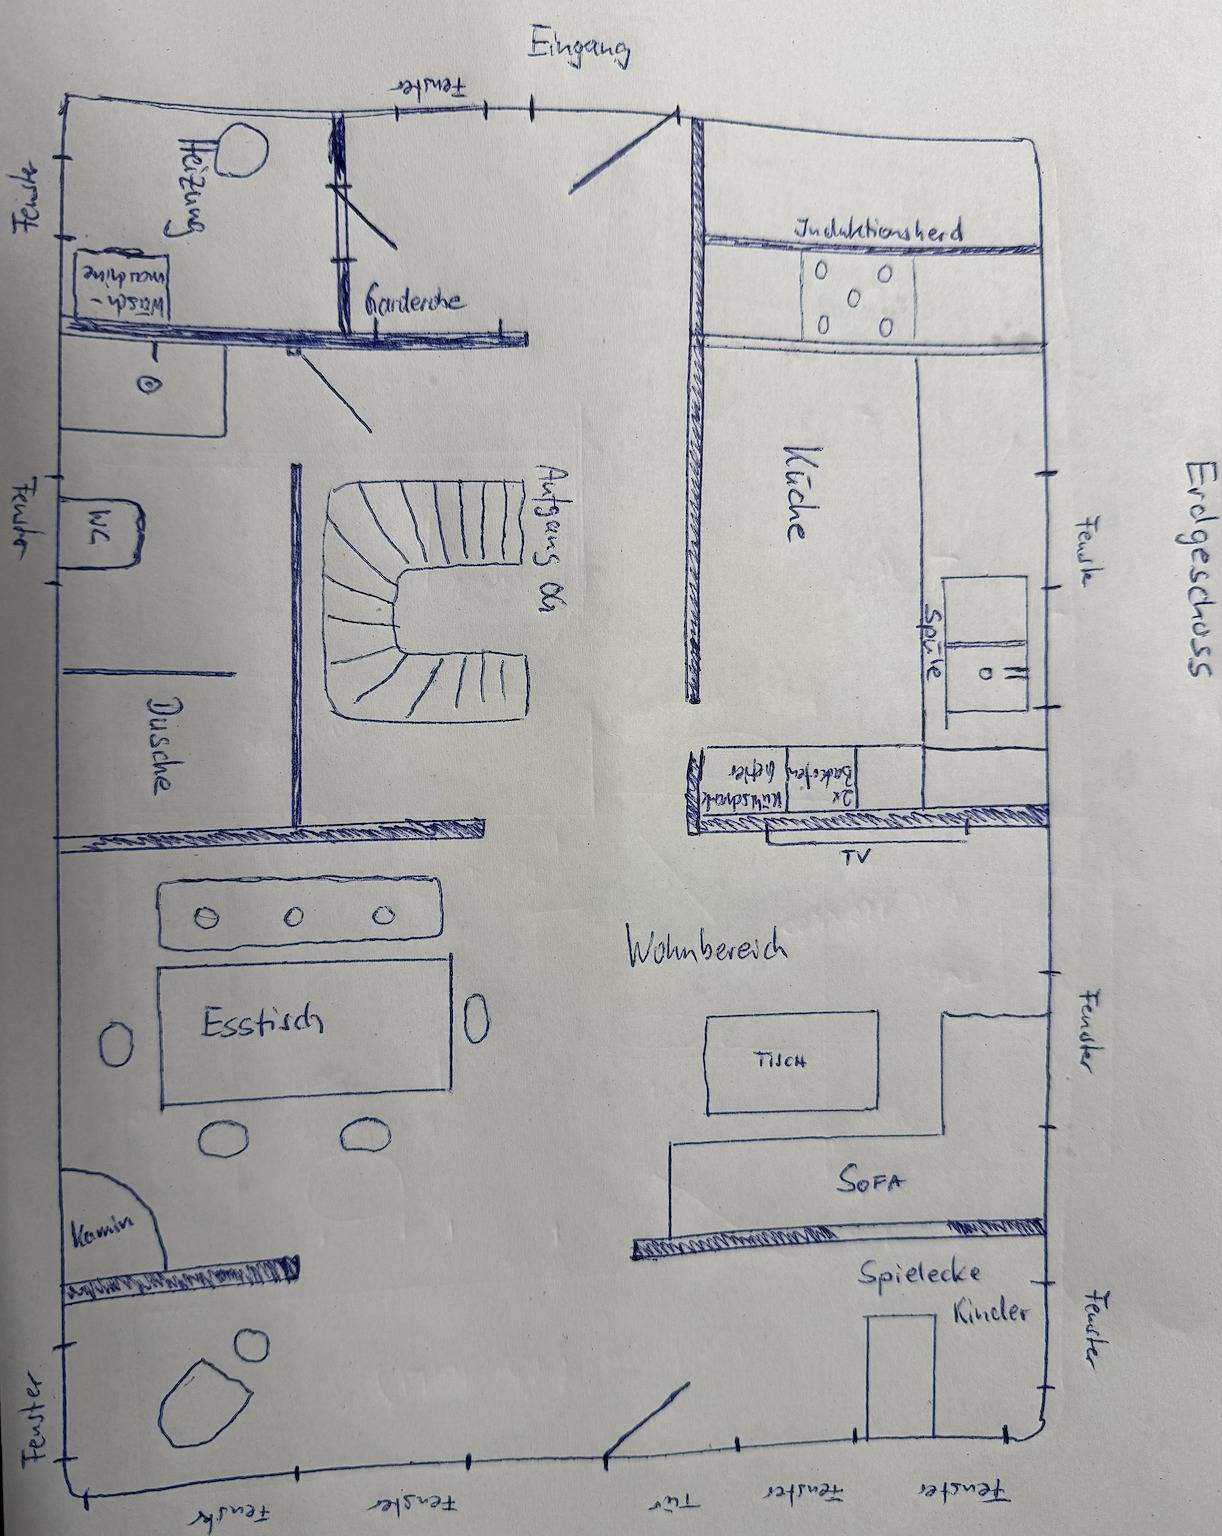 Eingang
Fenster
Fenster
Heizung
Wasch-
maschine
Garderobe
Induktionsherd
Erdgeschoss
Küche
Aufgang OG
Fenster
WC
Fenste
Spüle
Dusche
Kühlschrank
2x
Backofen
TV
Wohnbereich
Esstisch
Fenster
TISCH
SOFA
Kamin
Spielecke
Kinder
Fenster
Fenster
Fenstr
Fenster
Tür
Fenster
Fenster